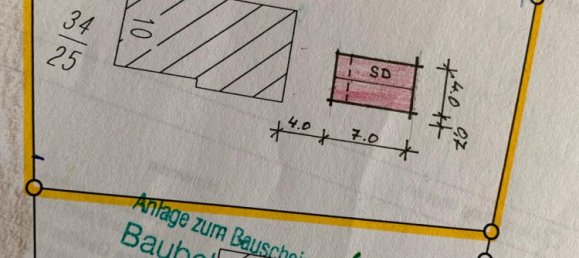 34
25
10
SD
4.0
0,2
4.0
7.0
Anlage zum Bauschei